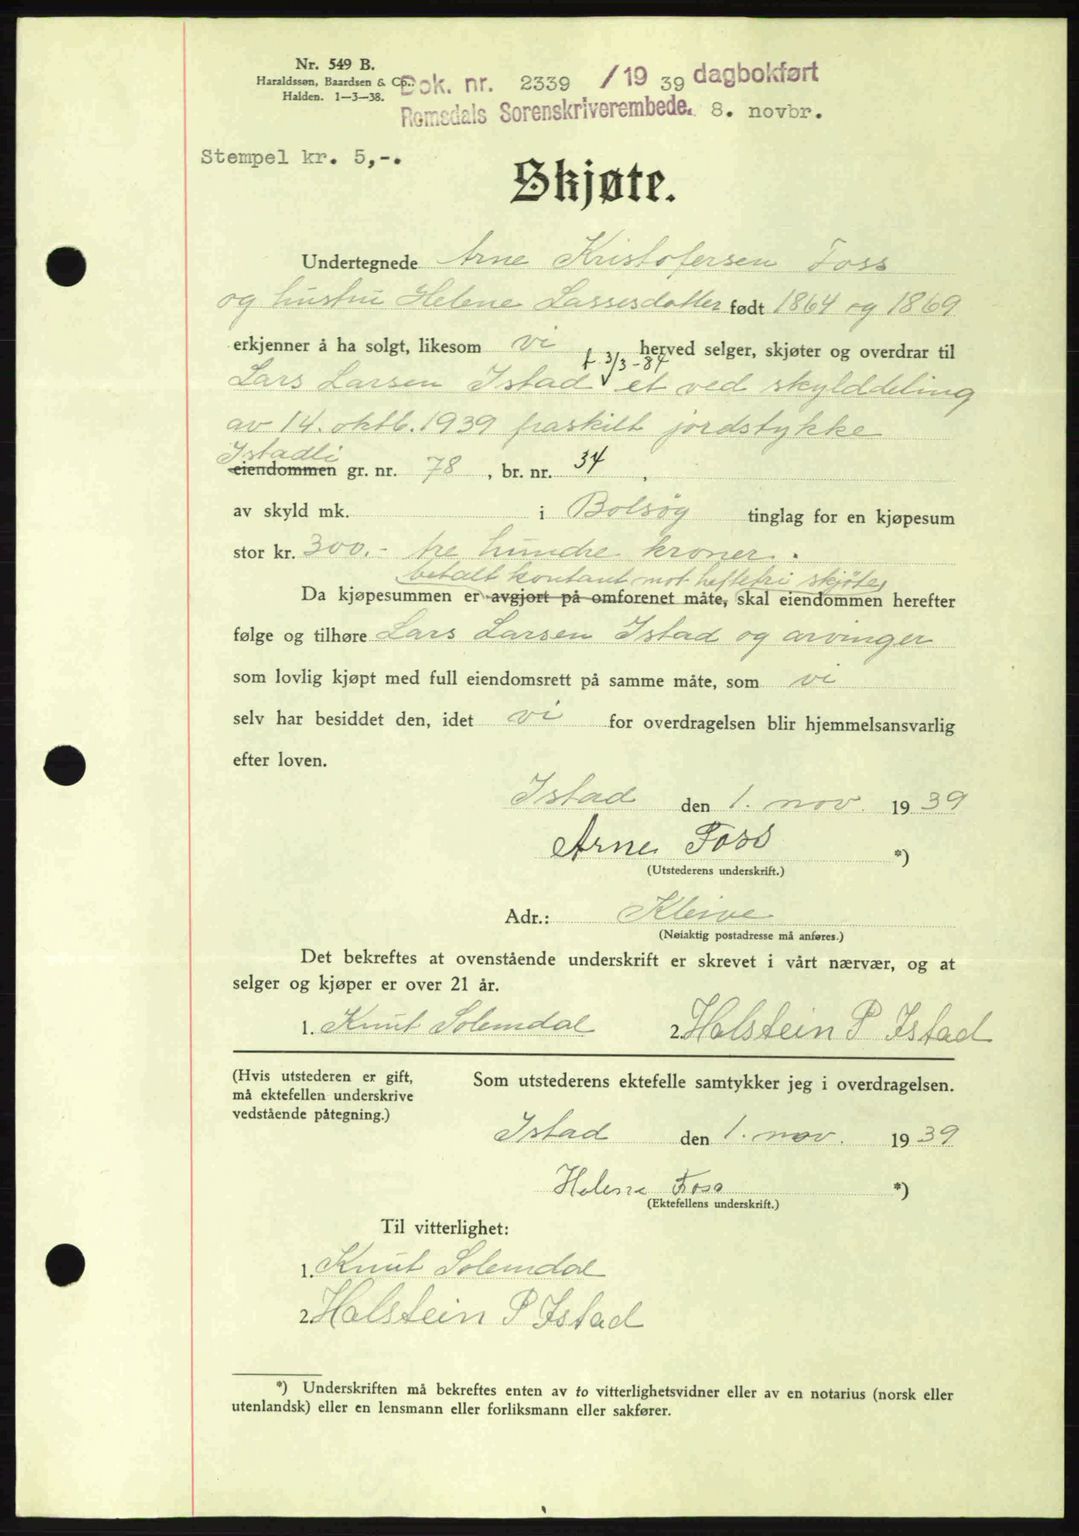 Nr. 549 B.
Haraldssøn, Baardsen & Co.
Halden. 1—3—38.
Dok. nr. 2339 /19 39 dagbokført
Romsdals Sorenskriverembede. 8. novbr.
Stempel kr. 5,-.
Skjøte.
Undertegnede Arne Kristofersen Foss
og hustru Helene Larsesdatter født 1864 og 1869
erkjenner å ha solgt, likesom vi herved selger, skjøter og overdrar til
f 3/3-84
Lars Larsen Istad et ved skylddeling
av 14. oktb. 1939 fraskilt jordstykke
Istadli
eiendommen gr. nr. 78, br. nr. 34,
av skyld mk. i Bolsøy tinglag for en kjøpesum
stor kr. 300.- tre hundre kroner.
betalt kontant mot heftefri skjøte,
Da kjøpesummen er avgjort på omforenet måte, skal eiendommen herefter
følge og tilhøre Lars Larsen Istad og arvinger
som lovlig kjøpt med full eiendomsrett på samme måte, som vi
selv har besiddet den, idet vi for overdragelsen blir hjemmelsansvarlig
efter loven.
Istad den 1. nov. 1939
Arne Foss *)
(Utstederens underskrift.)
Adr.: Kleive
(Nøiaktig postadresse må anføres.)
Det bekreftes at ovenstående underskrift er skrevet i vårt nærvær, og at
selger og kjøper er over 21 år.
1. Knut Solemdal 2. Halstein P Istad
(Hvis utstederen er gift, Som utstederens ektefelle samtykker jeg i overdragelsen.
må ektefellen underskrive
vedstående påtegning.)
Istad den 1. nov. 1939
Helene Foss *)
(Ektefellens underskrift.)
Til vitterlighet:
1. Knut Solemdal
2. Halstein P Istad
*) Underskriften må bekreftes enten av to vitterlighetsvidner eller av en notarius (norsk eller
utenlandsk) eller en lensmann eller forliksmann eller sakfører.